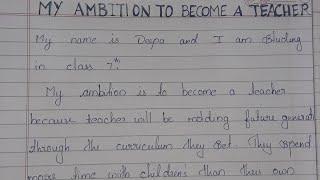 MY AMBITION TO BECOME A TEACHER
My name is Deepa and I am Studing
in class 7th.
My ambition is to become a teacher
because teacher will be molding future generat
through the curriculum they set. They spend
more time with children's than their own